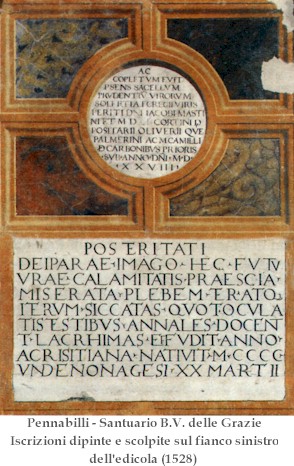 AC
COPLETVM FVIT
PSENS SACELLVM
PRVDENTIV VIRORVM
SOLERTIA FEREGIVIRIS
PERITI DNI IACOBI MASTI
NI ET M D CORTINI D
POSITARII OLIVERII QVE
PALMERINI AC M CAMILLI
D CARBONIBVS PRIORIS
SVB ANNO DNI M D
XXVIII
POSTERITATI
DEIPARAE IMAGO HEC FVTV
VRAE CALAMITATIS PRAESCIA
MISERATA PLEBEM ER ATO
TERVM SICCATAS QVOT OCVLA
TIS ESTIBVS ANNALES DOCENT
LACRHIMAS EFFVDIT ANNO
A CRISITIANA NATIVIT M CCCC
VNDENONAGESI XX MARTII
Pennabilli - Santuario B.V. delle Grazie
Iscrizioni dipinte e scolpite sul fianco sinistro
dell'edicola (1528)